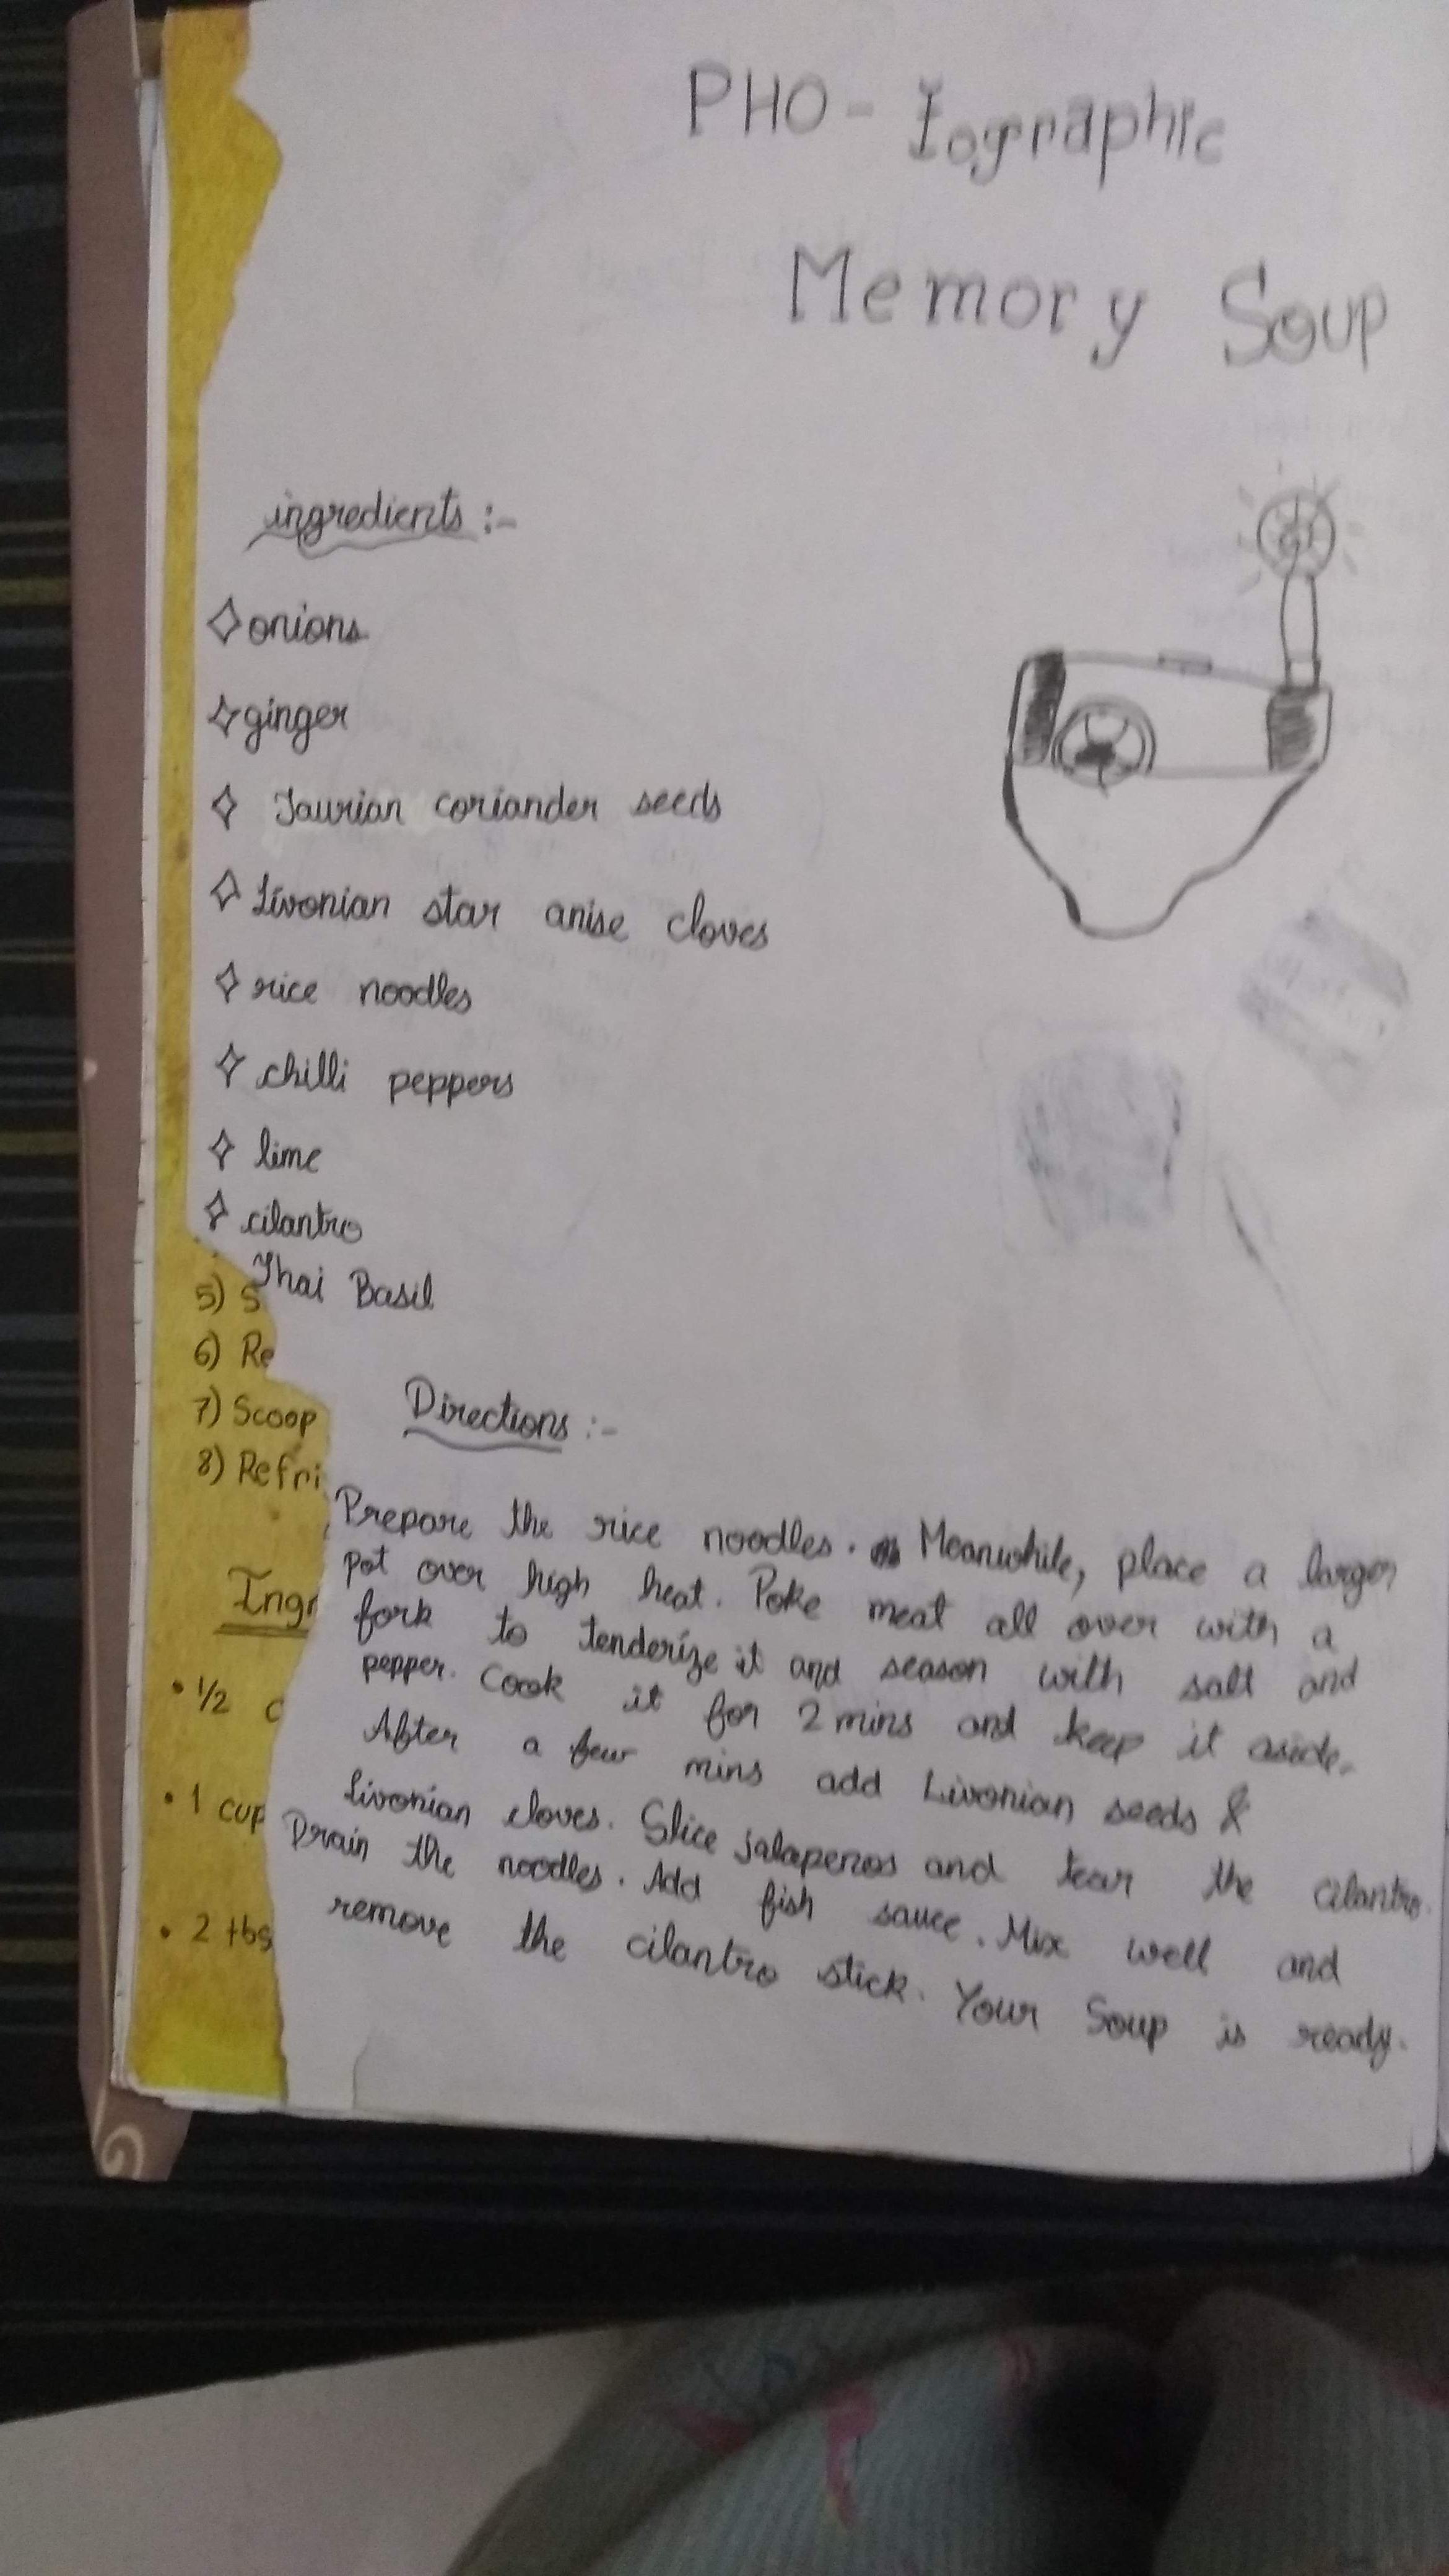 PHO-Tographic
Memory Soup
ingredients :-
onions
ginger
Taurian coriander seeds
Livonian star anise cloves
rice noodles
chilli peppers
lime
cilantro
Thai Basil
5) S
6) Re
7) Scoop
8) Refri
Directions :-
Prepare the rice noodles. Meanwhile, place a large
pot over high heat. Poke meat all over with a
fork to tenderize it and season with salt and
pepper. Cook it for 2 mins and keep it aside.
After a few mins add Livonian seeds &
livonian cloves. Slice jalapenos and tear the cilantro.
Drain the noodles. Add fish sauce. Mix well and
remove the cilantro stick. Your Soup is ready.
Ingr
• 1/2 c
• 1 cup
• 2 tbs